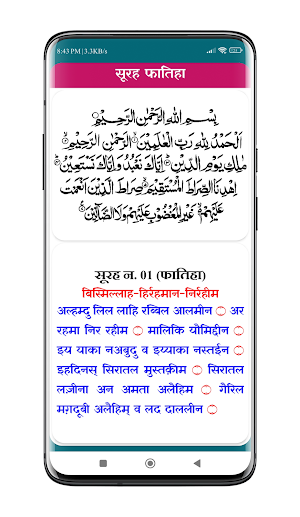 8:43 PM | 3.3KB/s
सूरह फातिहा
بِسْمِ اللهِ الرَّحْمٰنِ الرَّحِيْمِ
اَلْحَمْدُ لِلّٰهِ رَبِّ الْعٰلَمِيْنَ الرَّحْمٰنِ الرَّحِيْمِ
مٰلِكِ يَوْمِ الدِّيْنِ اِيَّاكَ نَعْبُدُ وَاِيَّاكَ نَسْتَعِيْنُ
اِهْدِنَا الصِّرَاطَ الْمُسْتَقِيْمَ صِرَاطَ الَّذِيْنَ اَنْعَمْتَ
عَلَيْهِمْ غَيْرِ الْمَغْضُوْبِ عَلَيْهِمْ وَلَا الضَّآلِّيْنَ
सूरह न. 01 (फातिहा)
बिस्मिल्लाह-हिर्रहमान-निर्रहीम
अल्हम्दु लिल लाहि रब्बिल आलमीन ۝ अर
रहमा निर रहीम ۝ मालिकि यौमिद्दीन ۝
इय याका नअबुदु व इय्याका नस्तईन ۝
इहदिनस् सिरातल मुस्तक़ीम ۝ सिरातल
लज़ीना अन अमता अलैहिम ۝ गैरिल
मग़दूबी अलैहिम् व लद दाललीन ۝